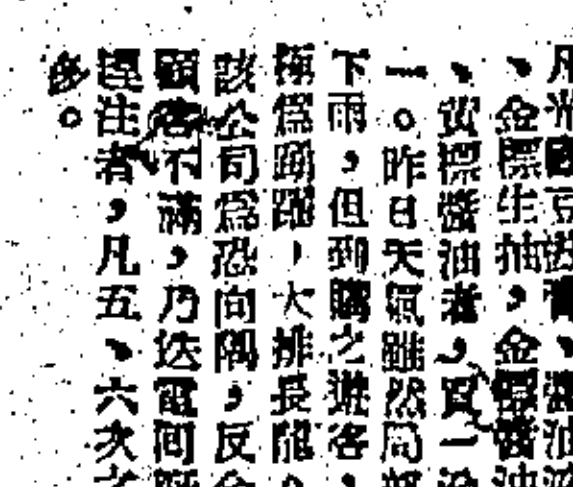 凡光國豆
、金標生抽，金標醬油
、黃標醬油者，買一
一。昨日天氣雖然局部
下雨，但到購之遊客，
極爲踴躍，大排長龍。
該公司爲恐向隅，反令
顧客不滿，乃迭電同
經注者，凡五、六次之
多。